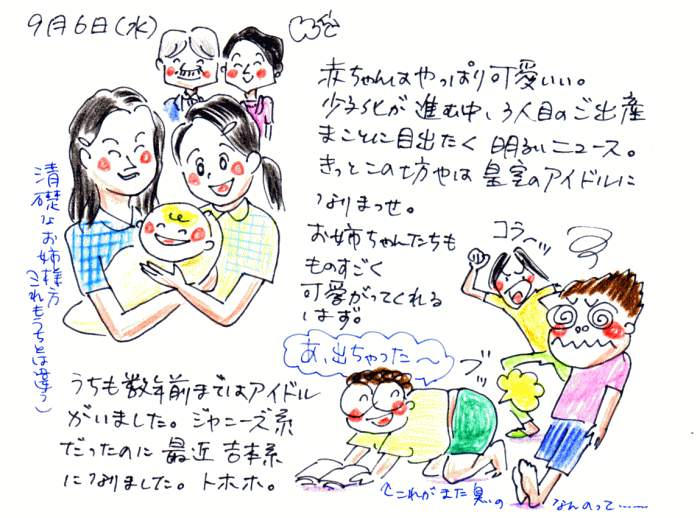 9月6日(水)
赤ちゃんはやっぱり可愛いい。
少子化が進む中、3人目のご出産
まことに目出たく明るいニュース。
きっとこの坊やは皇室のアイドルに
なりまっせ。
お姉ちゃんたちも
ものすごく
可愛がってくれる
はず。
清礎なお姉様方
(これもうちとは違う)
コラ〜ッ
あ、出ちゃった〜
ブッ
うちも数年前まではアイドル
がいました。ジャニーズ系
だったのに最近吉本系
になりました。トホホ。
これがまた臭いの なんのって……